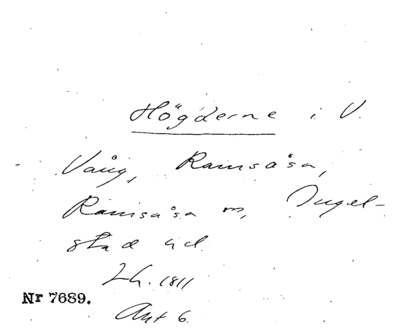 Högderne i V.
Vång, Ramsåsa,
Ramsåsa sn, Ingel-
stad hd.
Lh. 1811
Nr 7689.
Akt 6.